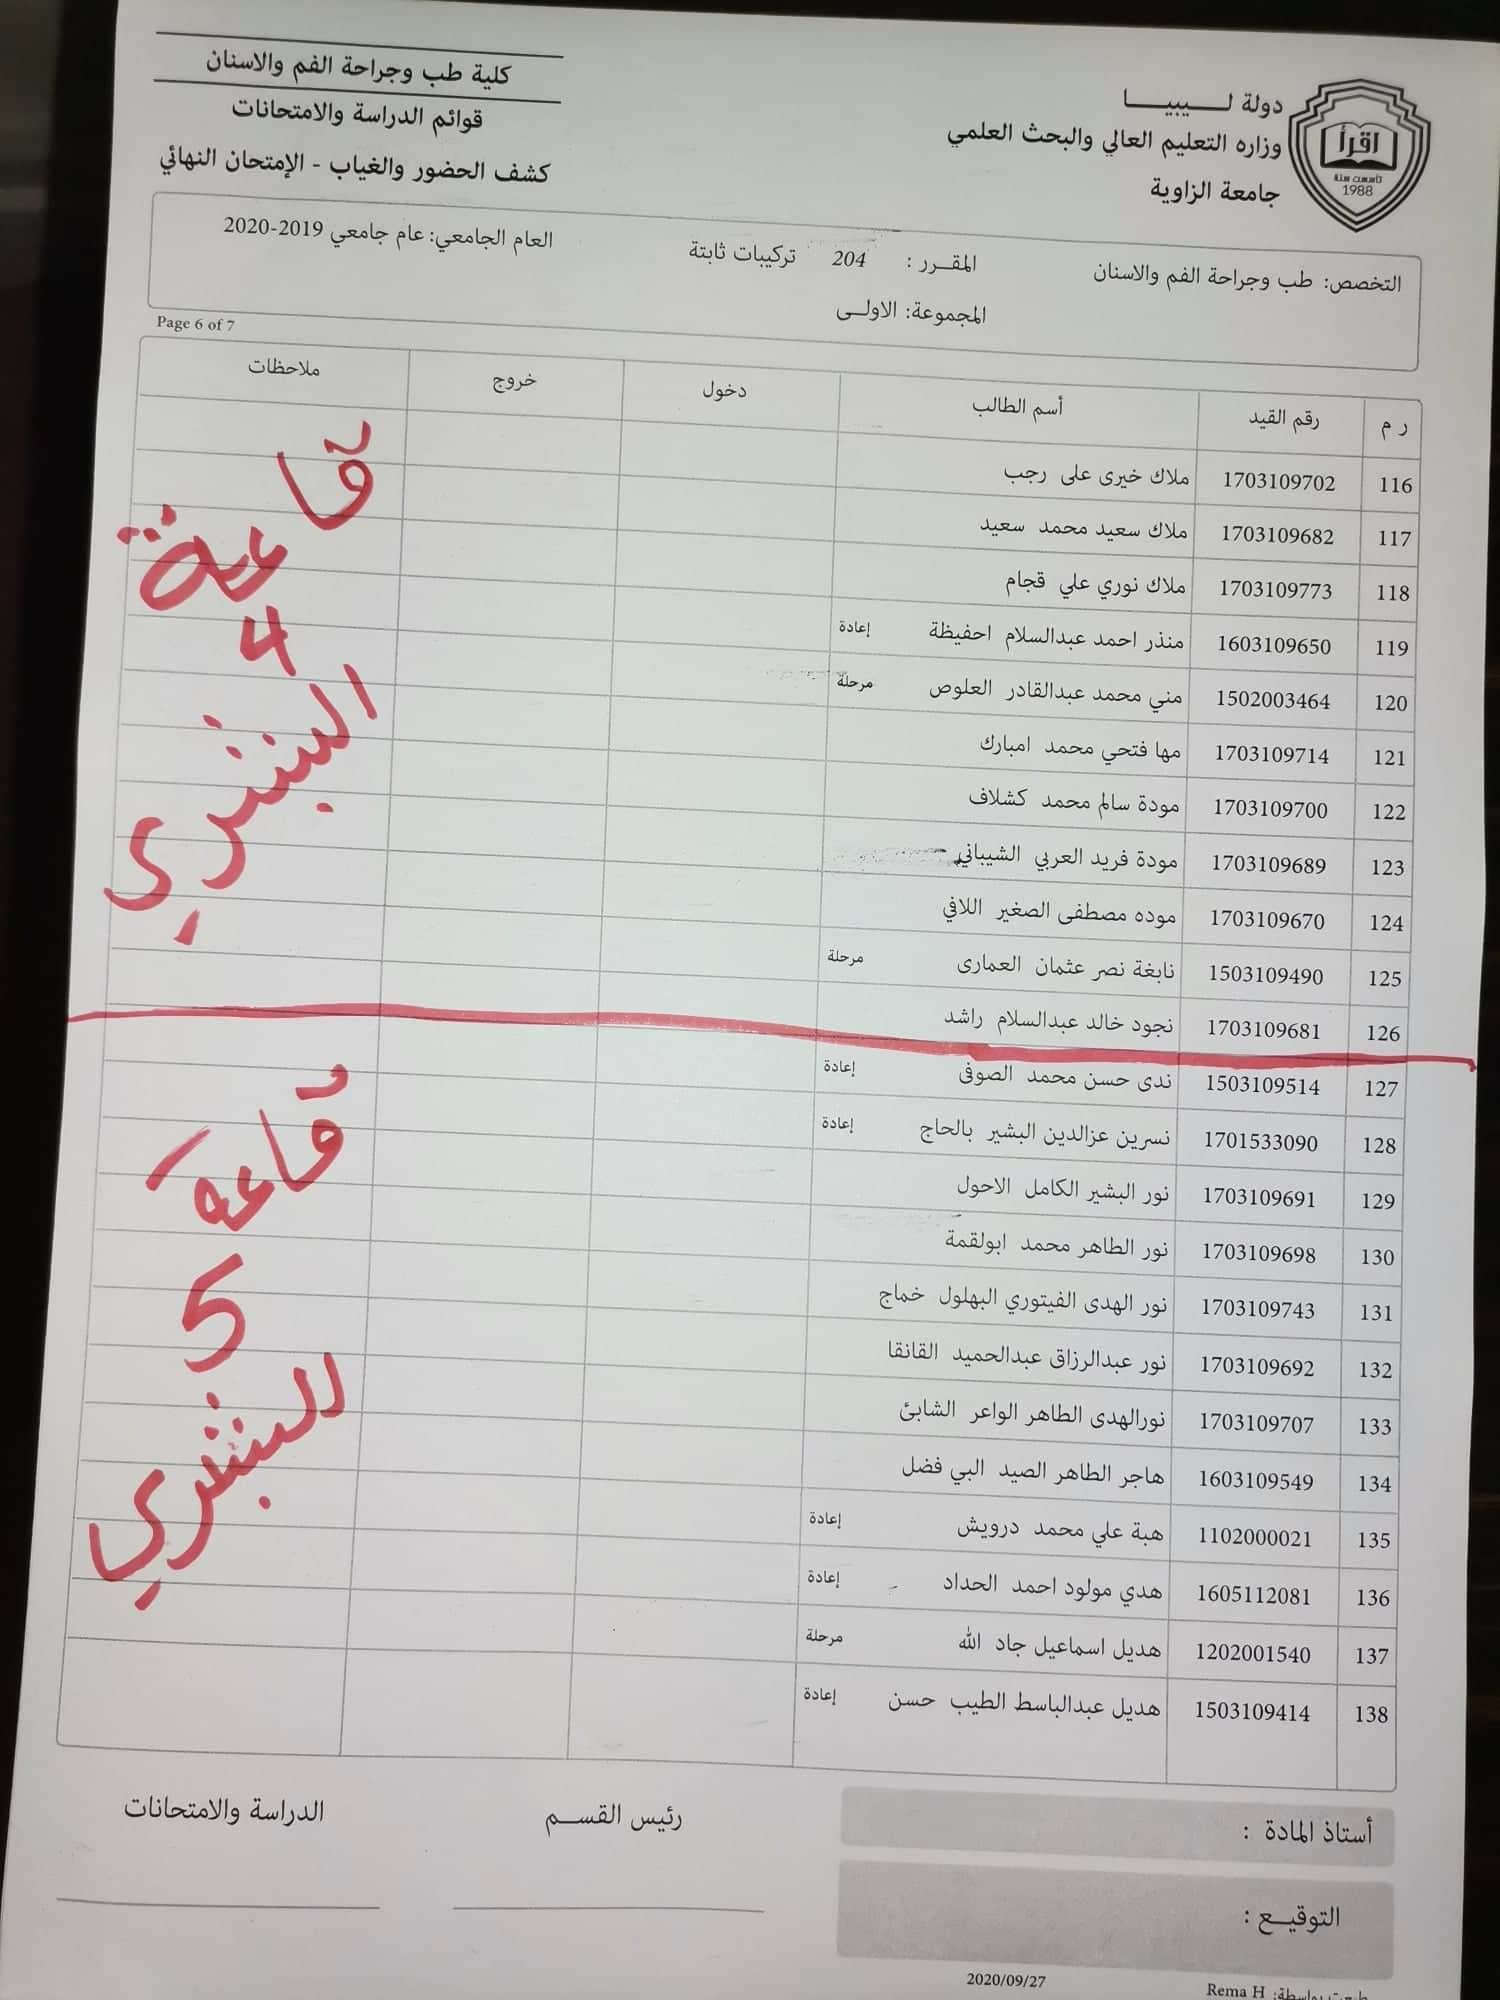 دولة لـــيبيـــا
وزاره التعليم العالي والبحث العلمي
جامعة الزاوية
اقرأ
تأسست سنة
1988
كلية طب وجراحة الفم والاسنان
قوائم الدراسة والامتحانات
كشف الحضور والغياب - الإمتحان النهائي
التخصص: طب وجراحة الفم والاسنان المقـــرر : 204 تركيبات ثابتة العام الجامعي: عام جامعي 2019-2020
المجموعة: الاولــى
Page 6 of 7
ر م رقم القيد أسم الطالب دخول خروج ملاحظات
116 1703109702 ملاك خيرى على رجب
117 1703109682 ملاك سعيد محمد سعيد
118 1703109773 ملاك نوري علي قجام
119 1603109650 منذر احمد عبدالسلام احفيظة إعادة
120 1502003464 مني محمد عبدالقادر العلوص مرحلة
121 1703109714 مها فتحي محمد امبارك
122 1703109700 مودة سالم محمد كشلاف
123 1703109689 مودة فريد العربي الشيباني
124 1703109670 موده مصطفى الصغير اللافي
125 1503109490 نابغة نصر عثمان العمارى مرحلة
126 1703109681 نجود خالد عبدالسلام راشد
قاعة
4
البشري
127 1503109514 ندى حسن محمد الصوفى إعادة
128 1701533090 نسرين عزالدين البشير بالحاج إعادة
129 1703109691 نور البشير الكامل الاحول
130 1703109698 نور الطاهر محمد ابولقمة
131 1703109743 نور الهدى الفيتوري البهلول خماج
132 1703109692 نور عبدالرزاق عبدالحميد القانقا
133 1703109707 نورالهدى الطاهر الواعر الشابئ
134 1603109549 هاجر الطاهر الصيد البي فضل
135 1102000021 هبة علي محمد درويش إعادة
136 1605112081 هدي مولود احمد الحداد إعادة
137 1202001540 هديل اسماعيل جاد الله مرحلة
138 1503109414 هديل عبدالباسط الطيب حسن إعادة
قاعة
5
البشري
أستاذ المادة : رئيس القســـم الدراسة والامتحانات
التوقيـــع :
2020/09/27
طبعت بواسطة: Rema H